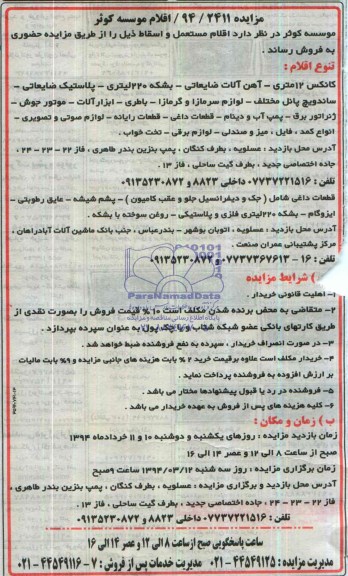 مزایده ۲۴۱۱ /۹۴ /اقلام موسسه کوثر
موسسه کوثر در نظر دارد اقلام مستعمل و اسقاط ذیل را از طریق مزایده حضوری
به فروش رساند .
تنوع اقلام :
کانکس ۱۲متری - آهن آلات ضایعاتی - بشکه ۲۲۰لیتری - پلاستیک ضایعاتی -
ساندویچ پانل مختلف - لوازم سرمازا و گرمازا - باطری - ابزارآلات - موتور جوش -
ژنراتور برق - پمپ آب و دینام - قطعات داغی - قطعات رایانه - لوازم صوتی و تصویری -
انواع کمد ، فایل ، میز و صندلی - لوازم برقی - تخت خواب .
آدرس محل بازدید : عسلویه ، بطرف کنگان ، پمپ بنزین بندر طاهری ، فاز ۲۲ - ۲۳ - ۲۴ ،
جاده اختصاصی جدید ، بطرف گیت ساحلی ، فاز ۱۳ .
تلفن : ۰۷۷۳۷۲۲۱۵۱۶ داخلی ۸۸۲۳ و ۰۹۱۳۵۲۳۰۸۷۲
قطعات داغی شامل ( جک و دیفرانسیل جلو و عقب کامیون ) - پشم شیشه - عایق رطوبتی -
ایزوگام - بشکه ۲۲۰لیتری فلزی و پلاستیکی - روغن سوخته با بشکه .
آدرس محل بازدید : عسلویه ، اتوبان بوشهر - بندرعباس ، جنب بانک ماشین آلات آبادراهان ،
مرکز پشتیبانی عمران صنعت .
تلفن : ۱۶ - ۰۷۷۳۷۳۶۷۶۱۳ و ۰۹۱۳۵۲۳۰۸۷۲
) شرایط مزایده
۱- اهلیت قانونی خریدار .
۲- متقاضی به محض برنده شدن مکلف است ۱۰% قیمت فروش را بصورت نقدی از
طریق کارتهای بانکی عضو شبکه شتاب و یا چک پول به عنوان سپرده بپردازد .
۳- در صورت انصراف خریدار ، سپرده به نفع فروشنده ضبط خواهد شد .
۴- خریدار مکلف است علاوه برقیمت خرید ۲% بابت هزینه های جانبی مزایده و ۹% بابت مالیات
بر ارزش افزوده به فروشنده پرداخت نماید .
۵- فروشنده در رد یا قبول پیشنهادها مختار می باشد .
۶- کلیه هزینه های پس از فروش به عهده خریدار می باشد .
ب ) زمان و مکان :
زمان بازدید مزایده : روزهای یکشنبه و دوشنبه ۱۰ و ۱۱ خردادماه ۱۳۹۴
صبح از ساعت ۸ الی ۱۲ و عصر ۱۴ الی ۱۶
زمان برگزاری مزایده : روز سه شنبه ۱۳۹۴/۰۳/۱۲ ساعت ۹صبح
آدرس محل بازدید و برگزاری مزایده : عسلویه ، بطرف کنگان ، پمپ بنزین بندر طاهری ،
فاز ۲۲ - ۲۳ - ۲۴ ، جاده اختصاصی جدید ، بطرف گیت ساحلی ، فاز ۱۳ .
تلفن : ۰۷۷۳۷۲۲۱۵۱۶ داخلی ۸۸۲۳ و ۰۹۱۳۵۲۳۰۸۷۲
ساعت پاسخگویی صبح از ساعت ۸ الی ۱۲ و عصر ۱۴ الی ۱۶
مدیریت مزایده : ۴۴۵۴۹۱۲۵-۰۲۱ مدیریت خدمات پس از فروش : ۷-۴۴۵۴۹۱۱۶-۰۲۱
ParsNamadData
پایگاه اطلاع رسانی مناقصه و مزایده